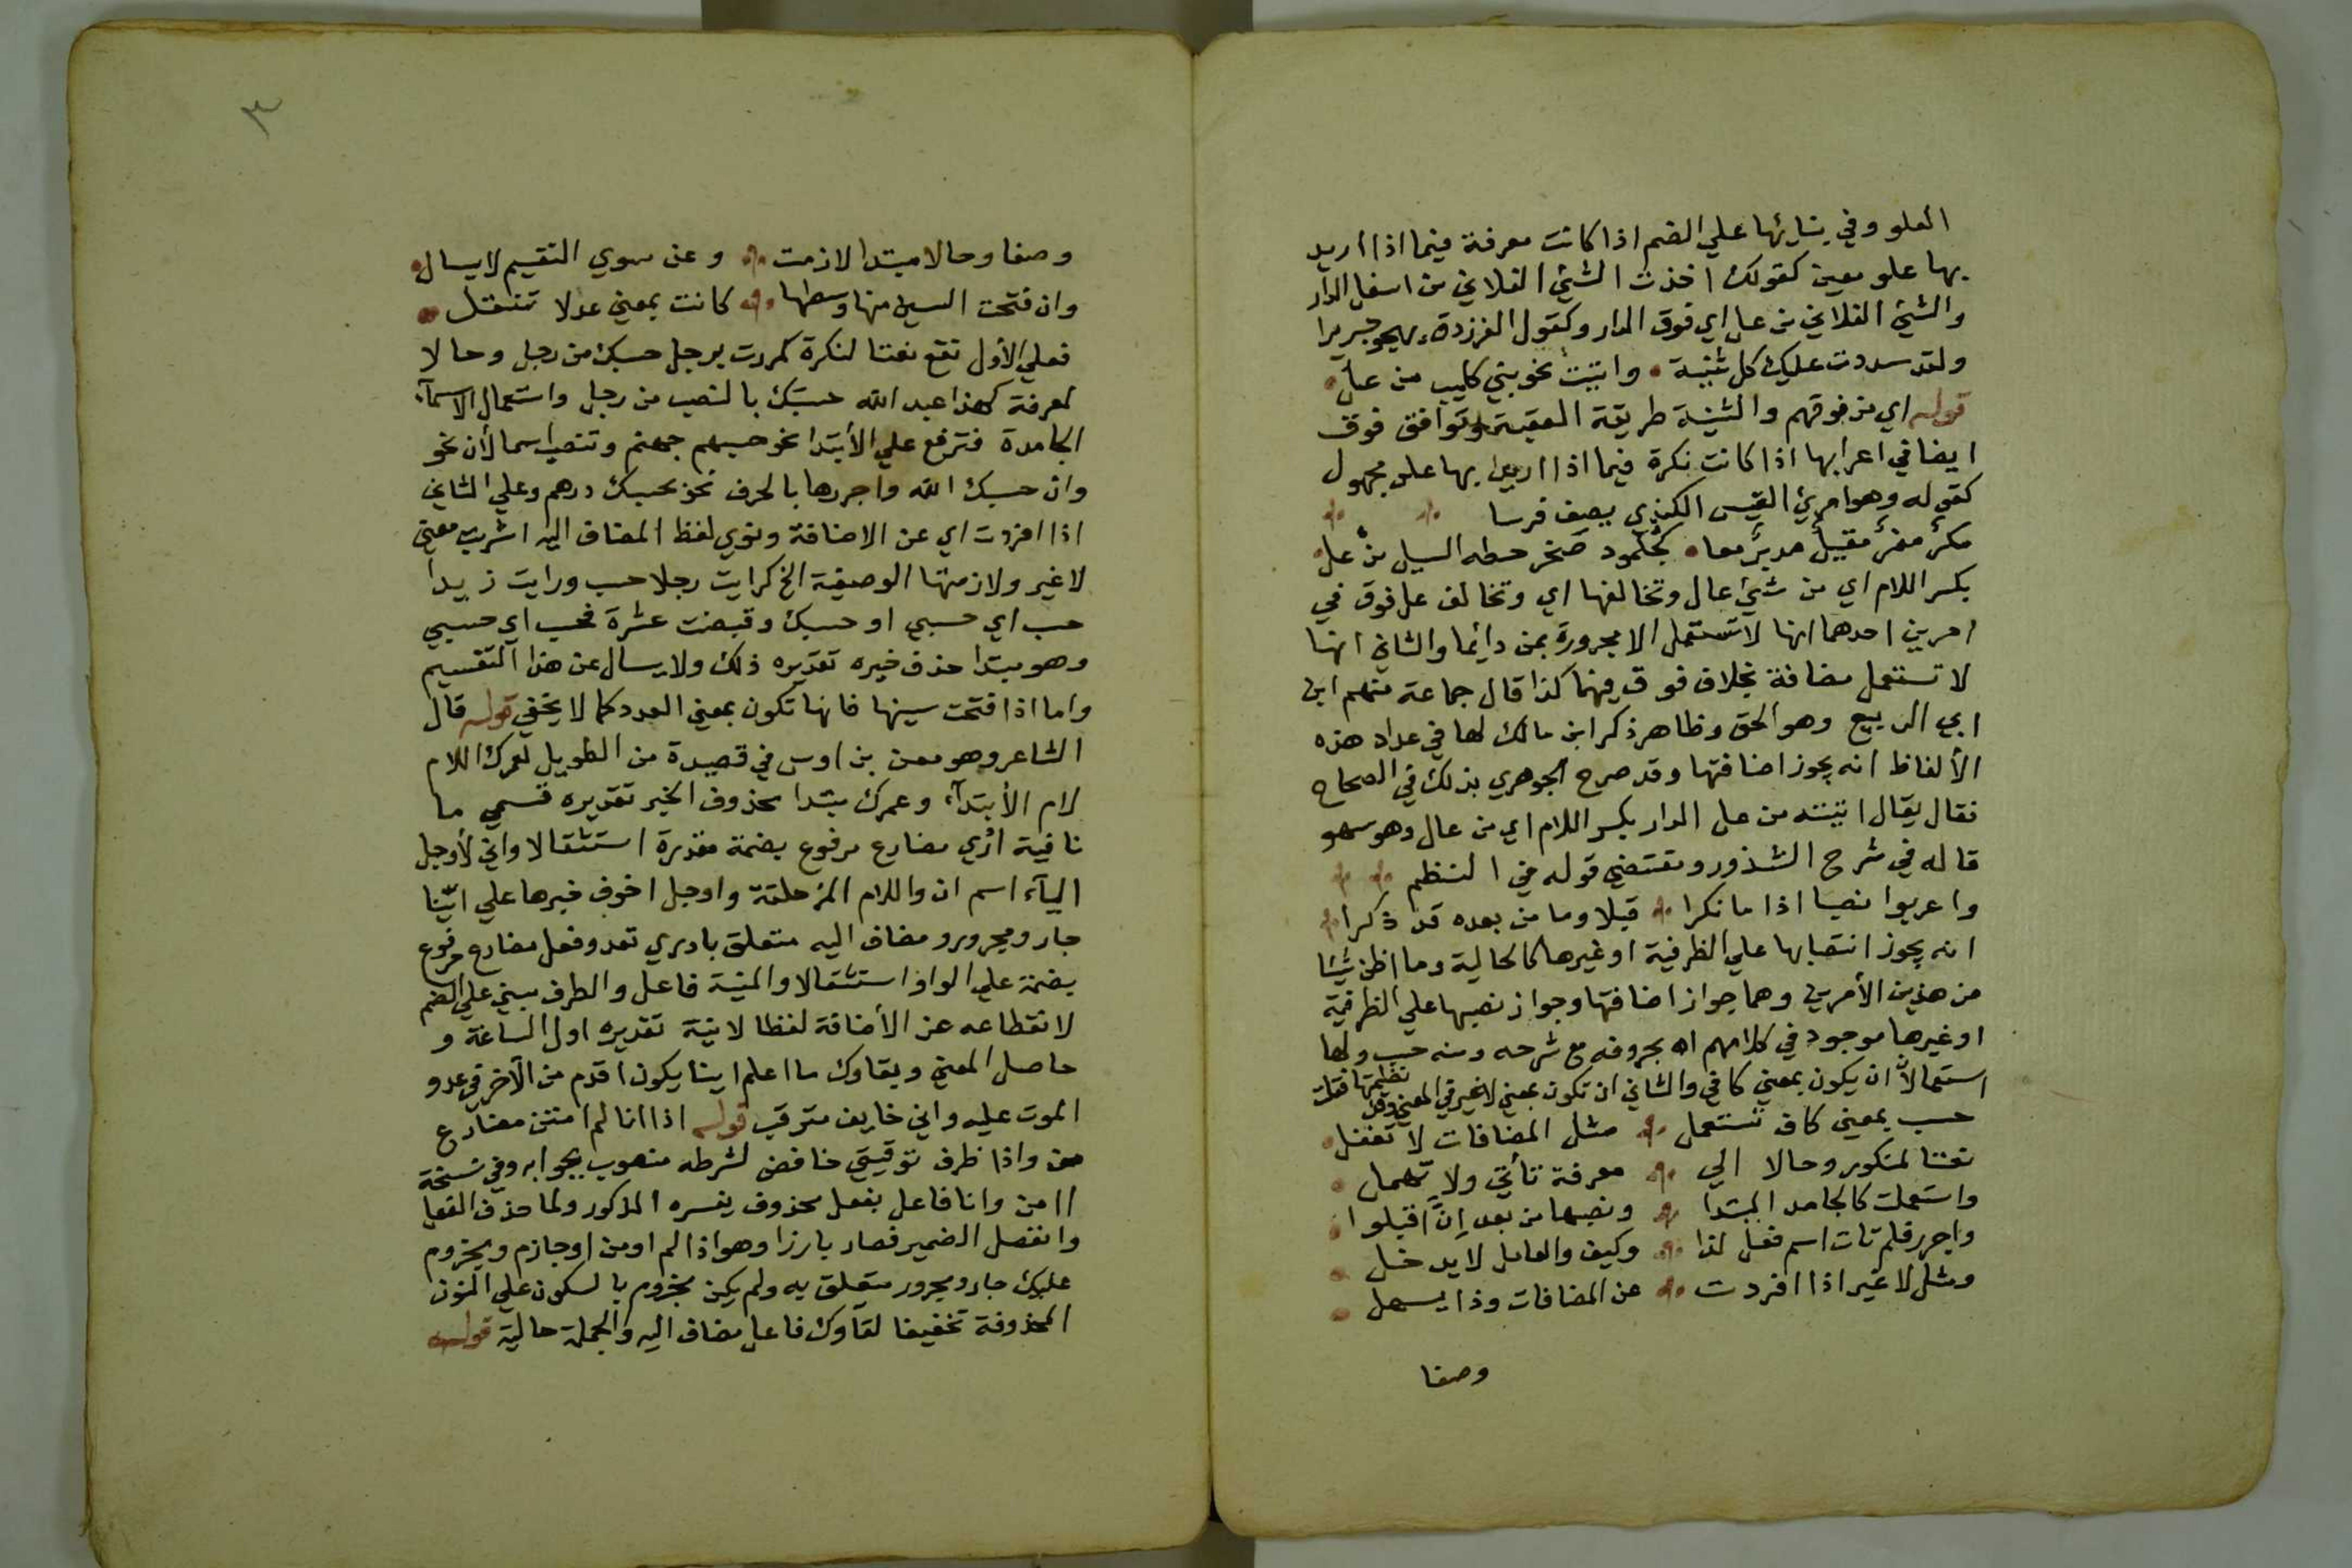 العلو وفي بنائها علي الضم اذا كانت معرفة فيما اذا اريد
بها علو معين كقولك اخذت الشئ الفلاني من اسفل الدار
والشئ الفلاني من عل اي فوق الدار وكقول الفرزدق يهجو جريرا
ولقد سددت عليك كل ثنية • واتيت نحو بني كليب من عل •
قوله اي من فوقهم والثنية طريقة العقبة وتوافق فوق
ايضا في اعرابها اذا كانت نكرة فيما اذا اريد بها علو مجهول
كقوله وهو امرئ القيس الكندي يصف فرسا
مكر مفر مقبل مدبر معا • كجلمود صخر حطه السيل من عل •
بكسر اللام اي من شئ عال وتخالفها اي وتخالف عل فوق في
امرين احدهما انها لا تستعمل الا مجرورة بمن دائما والثاني انها
لا تستعمل مضافة بخلاف فوق فيهما كذا قال جماعة منهم ابن
ابي الربيع وهو الحق وظاهر ذكر ابن مالك لها في عداد هذه
الألفاظ انه يجوز اضافتها وقد صرح الجوهري بذلك في الصحاح
فقال يقال اتيته من عل الدار بكسر اللام اي من عال وهو سهو
قاله في شرح الشذور ومقتضي قوله في النظم
واعربوا نصبا اذا ما نكرا قبلا وما من بعده قد ذكرا
انه يجوز انتصابها علي الظرفية او غيرها كالحالية وما اظن شيئا
من هذين الأمرين وهما جواز اضافتها وجواز نصبها علي الظرفية
او غيرها موجود في كلامهم اه بحروفه مع شرحه ومنه حسب ولها
استعمالان ان يكون بمعني كافي والثاني ان تكون بمعني لا غير في المعني وقد نظمتها فقلت
حسب بمعني كاف تستعمل مثل المضافات لا تغفل •
نعتا لمنكور وحالا الي معرفة تأتي ولا تهمل •
واستعملت كالجامد المبتدا ونصبها من بعد إنّ اقبلوا •
واجرر فلم تات اسم فعل لذا وكيف والعامل لا يدخل •
ومثل لا غير اذا افردت عن المضافات وذا يسهل •
وصفا
٣
وصفا وحالا مبتدا لازمت وعن سوي التقيم لا يسال •
وان فتحت السين منها وسطها كانت بمعني عد لا تنتقل •
فعلي الأول تقع نعتا لنكرة كمررت برجل حسبك من رجل وحالا
لمعرفة كهذا عبد الله حسبك بالنصب من رجل واستعمال الاسمآء
الجامدة فترفع علي الأبتدا نحو حسبهم جهنم وتنصب اسما لأن نحو
وان حسبك الله واجررها بالحرف نحو بحسبك درهم وعلي الثاني
اذا افردت اي عن الاضافة ونوي لفظ المضاف اليه اشربت معني
لا غير ولازمتها الوصفية الخ كرايت رجلا حسب ورايت زيدا
حسب اي حسبي او حسبك وقبضت عشرة فحسب اي حسبي
وهو مبتدا حذف خبره تقديره ذلك ولا يسال عن هذا التقسيم
واما اذا فتحت سينها فانها تكون بمعني العدد كما لا يخفي قوله قال
الشاعر وهو معن بن اوس في قصيدة من الطويل لعمرك اللام
لام الأبتدآء وعمرك مبتدا محذوف الخبر تقديره قسمي ما
نافية ادري مضارع مرفوع بضمة مقدرة استثقالا واني لأوجل
اليآء اسم ان واللام المزحلقة واوجل اخوف خبرها علي ايّنا
جار ومجرور ومضاف اليه متعلق بادري تعدو فعل مضارع مرفوع
بضمة علي الواو استثقالا والمنية فاعل والظرف مبني علي الضم
لانقطاعه عن الأضافة لفظا لا نية تقديره اول الساعة و
حاصل المعني وبقاوك ما اعلم اينا يكون اقدم من الآخر في عدو
الموت عليه واني خايف مترقب قوله اذا انا لم امنن مضارع
من واذا ظرف توقيتي خافض لشرطه منصوب بجوابه وفي نسخة
اامن وانا فاعل بفعل محذوف يفسره المذكور ولما حذف الفعل
وانفصل الضمير فصار بارزا وهو اذا لم اومن اوجازم ومجزوم
عليك جار ومجرور متعلق به ولم يكن مجزوم بالسكون علي النون
المحذوفة تخفيفا لقآوك فاعل مضاف اليه والجملة حالية قوله